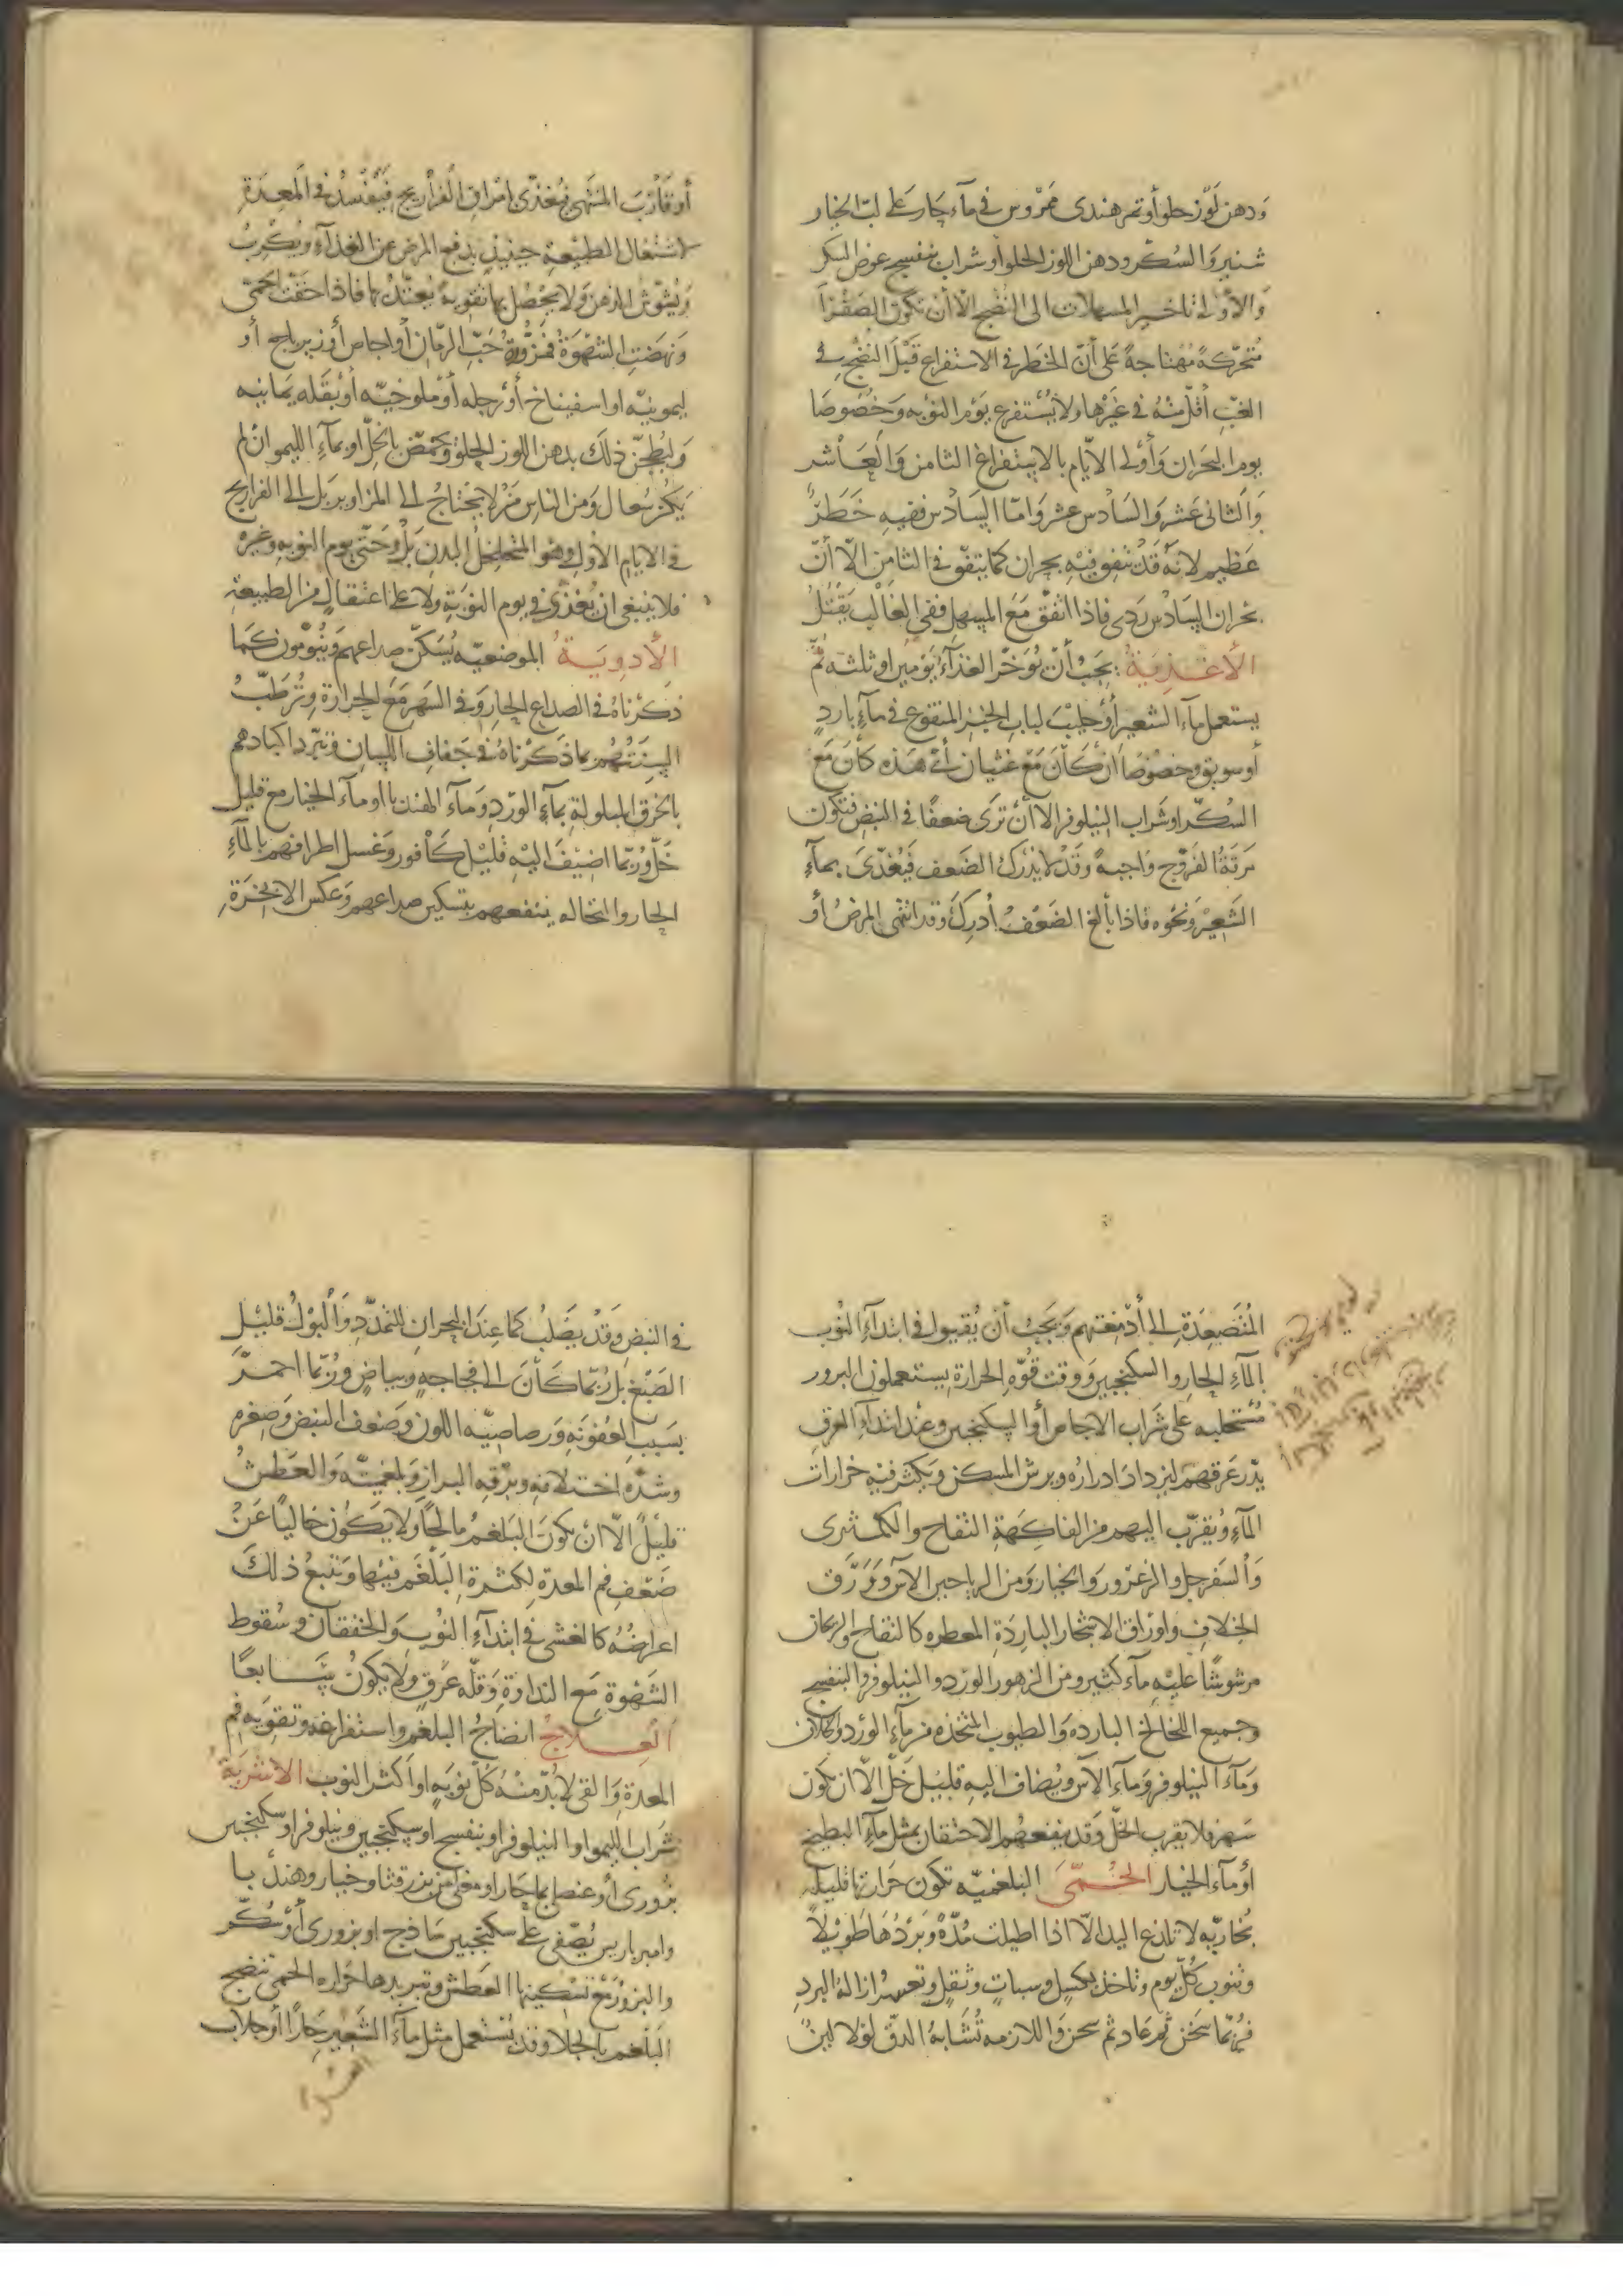 وَدهن لَوْز حلو أو تمر هندى ممروس فى مآء حار على لبّ الخيار
شنبر وَالسُكّر ودهن اللوز الحلو أو شراب بنفسج عوض السكر
وَالأوْلى تاخير المسهلات الى النضج الّا أن تكون الصَفرَآ
مُتحركة مُهتاجةً عَلى أنّ الخطر فى الاستفراغ قَبْلَ النضج فى
الغبّ أقلّ منْهُ فى غَيْرها ولا يُستفرغ يَوْم النوبه وَخصُوصًا
يوم البحران وَأوْلى الأيّام بالاستفراغ الثامن وَالعَاشر
وَالثانى عَشر وَالسَادس عشر وَامّا السَادس ففيه خَطرٌ
عَظيم لانّه قَدْ يتفق فيْهِ بحران كمَا يتفق فى الثامن الّا أنّ
بحران السَادس رَدى فاذا اتفَقَ مَعَ المسهل ففى الغَالب يَقْتُلُ
الأغذية : يجَبُ أنْ يُؤَخّر الغذآءَ يَوْمين او ثلثه ثُمّ
يستعمل مآء الشعير أوْ حليْبَ لباب الخبز المنقوع فى مآءٍ باردٍ
أو سويق وخصُوصًا ان كانَ مَعَ غثيان أىّ هَذه كانَ مَع
السُكّر او شراب النيلوفر الا أنْ ترَى ضعفًا فى النبض فتكون
مَرَقةُ الفرّوج وَاجبةً وَقَدْ لا يُدْرَكُ الضَعف فَيُغذّىَ بمآءِ
الشَعِيْر وَنحْوه فاذا بالغ الضَعْف أُدركَ وَقد انتهى المرضُ أو
أو قَارَبَ المنتَهى فيُغذّى امْراق الفراريج فَتَفْسُدُ فى المَعِدَةِ
لاشتغال الطبيْعةِ حينئذٍ بدفع المرض عن الغذآءِ وَيُكْربُ
وَيُشوّش الذهن وَلا يحْصُل بها تقوية يُعتَدُّ بها فاذا خفّت الحمّى
وَنهَضتِ الشهْوَةُ فمَزُّورةُ حَبّ الرمّان أو اجاص أو زيرباج أو
ليمونيّه او اسفيناخ أوْ رجله أوْ ملوخيّه أو بَقله يمانيه
وَليُطجّن ذلكَ بدهن اللوز الحلو وَيحمّض بالخلّ او بمآءِ الليمو ان لم
يَكُنْ سُعال وَمن الناس مَنْ لا يحْتاجُ الى المزاوير بَل الى الفراريج
فى الايام الأوَل وهو المتخلخل البدن بَلْ وَحَتّى يوم النوبه وغيره
فلا ينبغى ان يُغذّى فى يوم النوْبَةِ ولا على اعتقالٍ من الطبيعةِ
الأدوِيَةُ الموضعيّه يُسَكّن صداعهم وَيُنَوَّمُون كَمَا
ذكَرْناهُ فى الصداع الحارّ وَفى السَهر مَعَ الحرارة وتُرطَّبُ
السِنَتُهُم بما ذَكَرْناهُ فى جَفافِ اللسان وَتبَرّد اكبادهم
بالخرق المبلولةِ بمآءِ الوَرْدِ وَمآءِ الهندبا او مآء الخيار مع قليل
خَلّ وَرُبّما اضيْفَ اليْهِ قليْل كافور وَغسل اطرافهم بالمآءِ
الحار والنخاله ينفعهم بتسكين صداعهم وَعكس الابخرةِ
المُتَصعِدَةِ الى أدْمغتهم وَيَجبُ أن يُقيوا فى ابتدآءِ النُوب
بالمآءِ الحار والسكنجبين وَوقت قوّةِ الحرارة يستعملون البزور
مُستحلبه على شراب الاجاص أو السكنجبين وعند ابتدآءِ العرق
يدّر عَرقهم ليزدادَ ادرارُه ويرش المسكن ويكثر فيْه خرارات
المآءِ وَيُقرّب اليهم من الفاكَهةِ التفاح والكمّثرى
وَالسَفرجل والزعرور وَالخيار وَمن الرياحين الآس وَوَرَق
الخلاف واوراق الاشجار البارِدَة المعطره كالتفاح والرمان
مرشوشًا عليْهِ مآء كثير ومن الزهور الوَرد والنيلوفر والبنفسج
وجميع اللخالخ البارده وَالطيوب المتخذه من مآء الورد والخلاف
وَمآء النيلوفر وَمآء الآس ويُضاف اليه قليْل خَلّ الّا ان يكون
سَهر فلا يقرب الخلّ وَقد ينفعهُم الاحتقان بمثل مآءِ البطيخ
أو مآء الخيار الحُمّى البلغميّه تكون حَرارتها قليله
بُخاريّه لا تلذع اليد الّا اذا اطيلت مُدّةً وَبَردُهَا طَويْلاً
وتنوب كُلّ يوم وتاخذ بكسِل وسباتٍ وثقلٍ وتعسُر ازالة البرد
فربّما سَخن ثم عَاد ثم سخن وَاللازمه تُشَابهُ الدقّ لوْلا لينٌ
فى النبض وَقدْ يَصْلب كما عندَ البحران للتمدّد وَالْبَوْلُ قليْل
الصَبْغ بل رُبّما كَانَ الى فجاجه وبياض ورُبّما احمرّ
بسَبَبِ العُفونَةِ وَرصاصيّه اللون وَضعف النبض وَصغره
وشدّه اختلافه ورقة البراز وَبلغميّته وَالعَطش
قليْل الّا انْ يكونَ البَلغمُ مالحًا وَلا يَكُون خاليًا عَنْ
ضَعْفِ فم المعدة لكثرة البَلْغَم فيْها وَتتبعُ ذلكَ
اعراضُهُ كالغشى فى ابتدآءِ النُوب وَالخفقان وسُقوط
الشَهْوة مَع النداوةِ وَقلّة عَرقٍ ولا يَكونُ سَابغًا
العِلاجُ انضاجُ البلغم واستفراغه وتقويَة فم
المعدة وَالقى لا بُدّ منْهُ كُلّ نوْبَةٍ او اكثر النوب الاشربَةُ
شَراب الليمو او النيلوفر او بنفسج او سكنجبين ونيلوفر او سكنجبين
بزورى أو عنصلى بمآءٍ حار او مغلى من بزر قثا وخيار وهندبا
وامبرباريس يُصَفى على سكنجبين سَاذج او بزورى أوْ سُكّر
والبزور مَع تَسْكينها العَطش وتبريدها حَرارة الحمى تنضج
البَلْغم بالجلا وَقد يُسْتعمل مثل مآءِ الشَعير حَارًّا أو جلاب